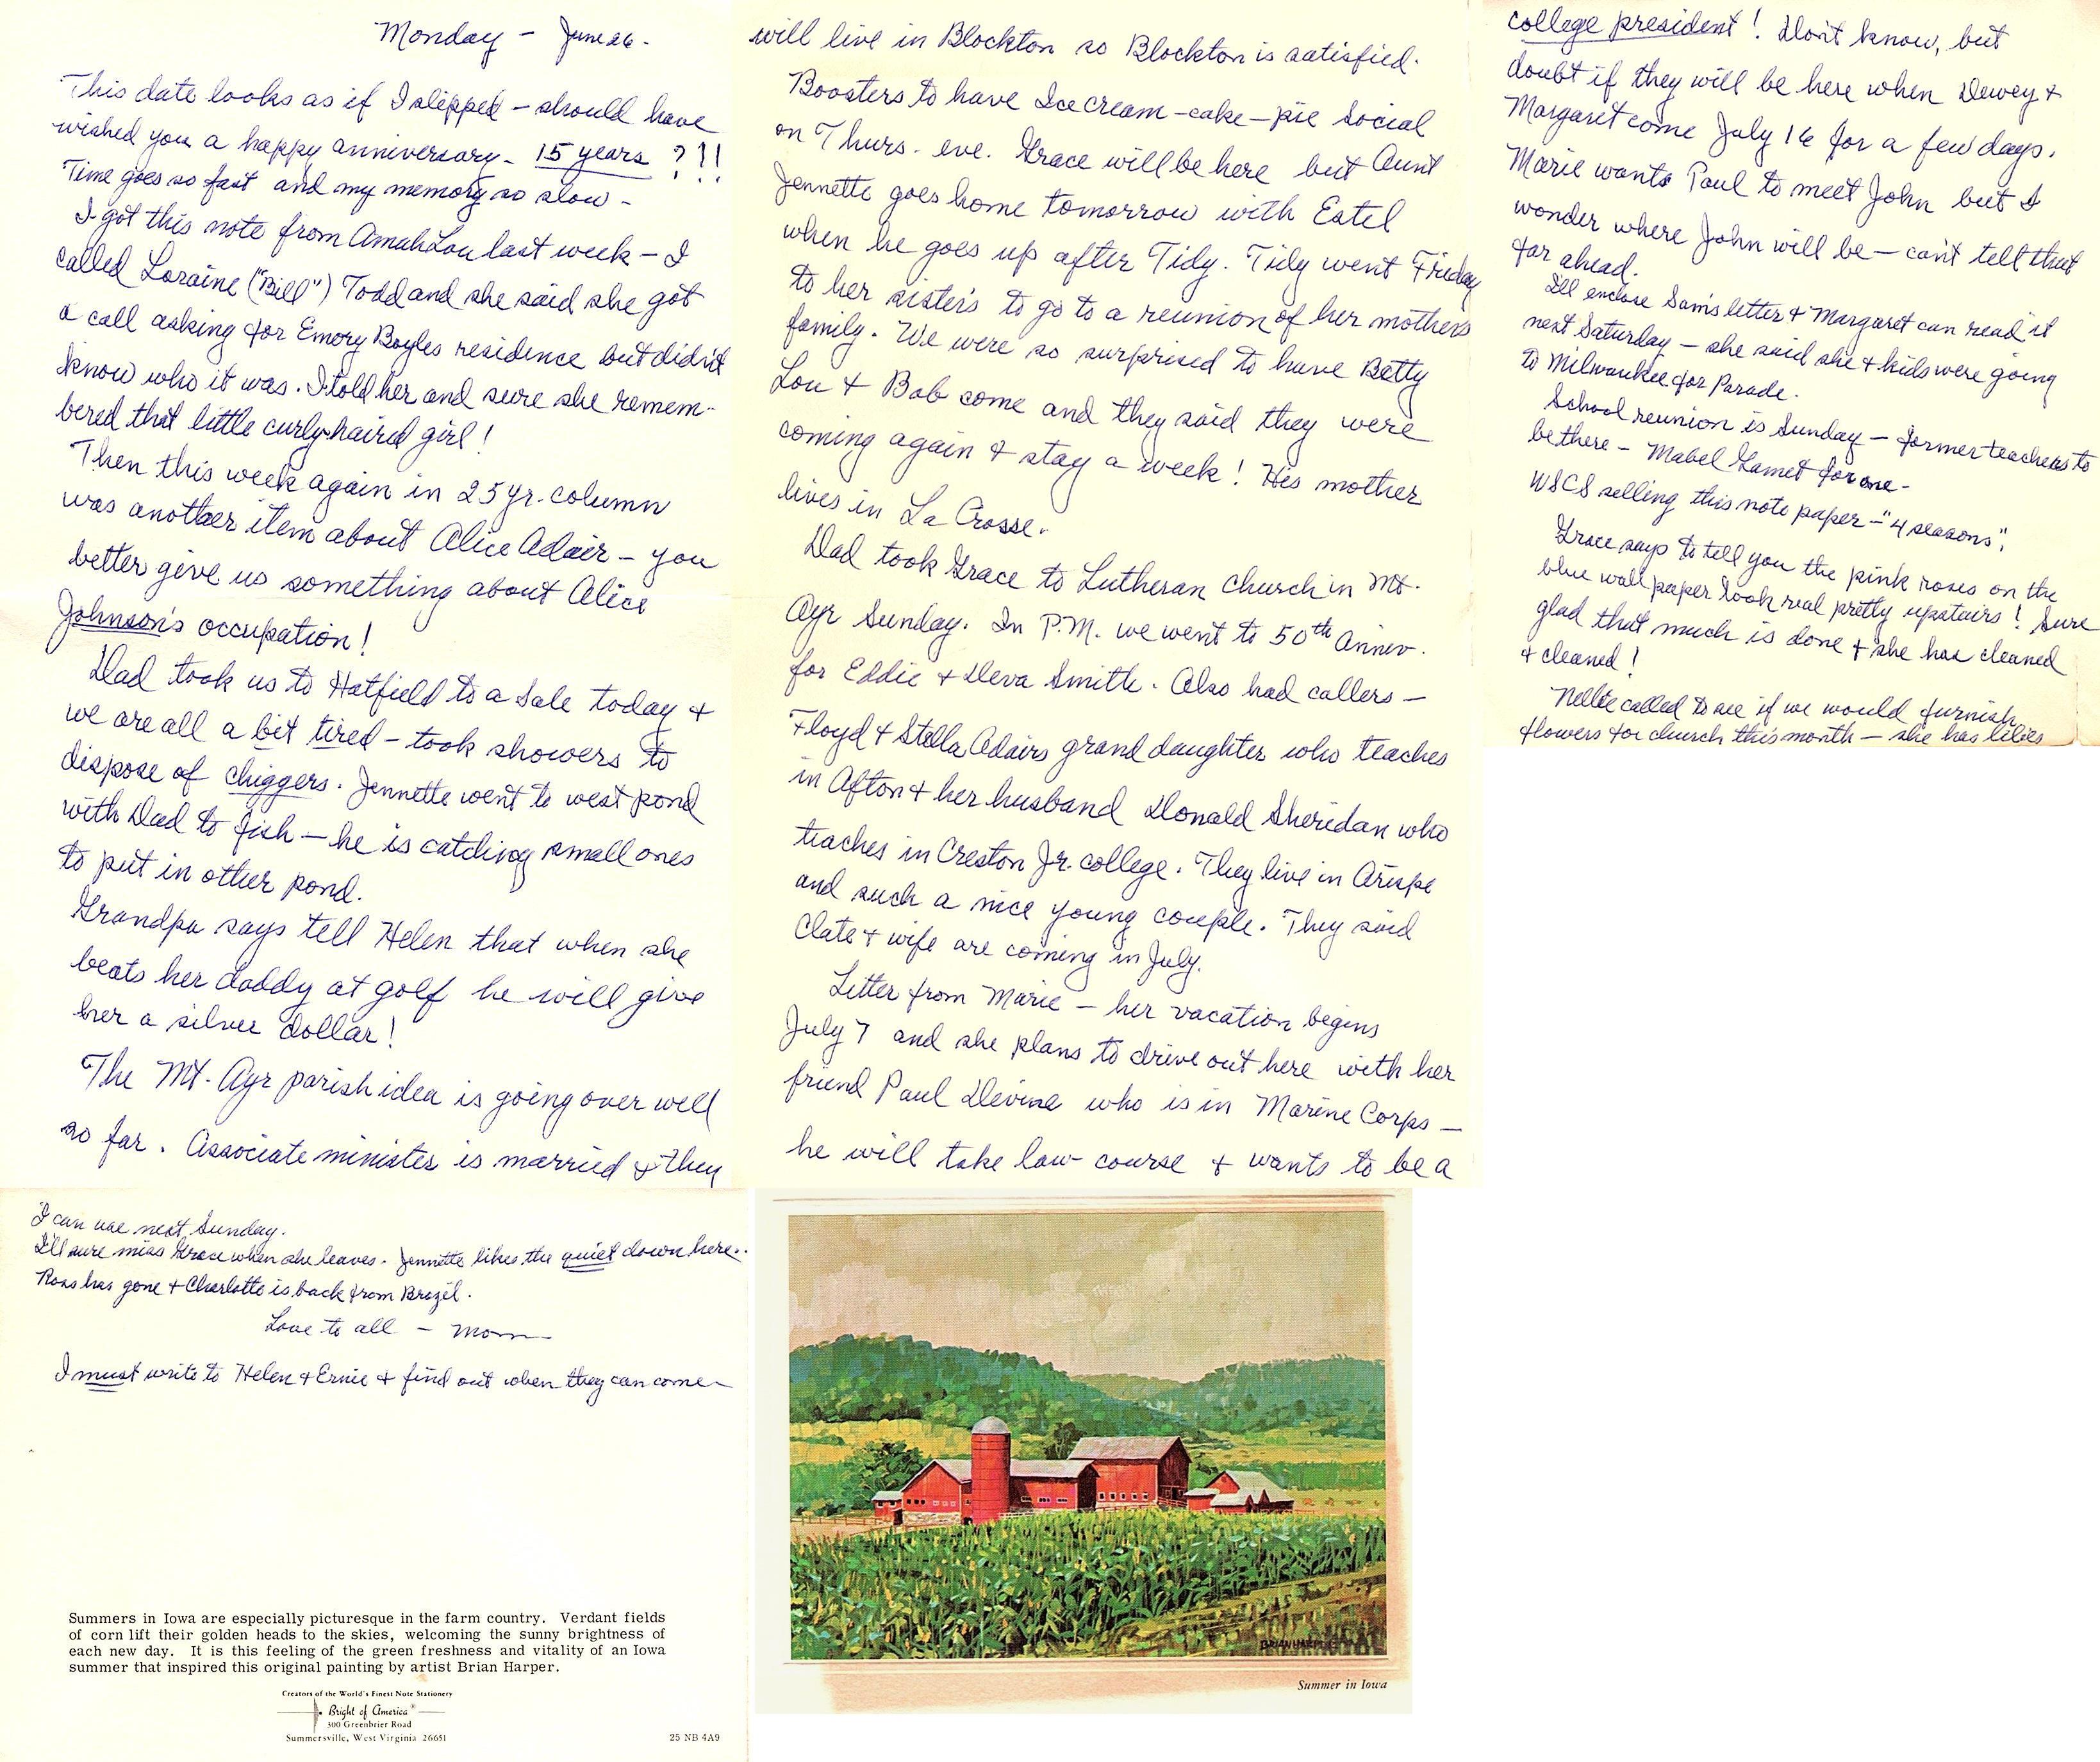 Monday - June 26.
This date looks as if I slipped - should have
wished you a happy anniversary - 15 years ?!!
Time goes so fast and my memory so slow -
I got this note from AmahLou last week - I
called Loraine ("Bill") Todd and she said she got
a call asking for Emory Boyles residence but didn't
know who it was. I told her and sure she remem-
bered that little curly-haired girl!
Then this week again in 25 yr. column
was another item about Alice Adair - you
better give us something about Alice
Johnson's occupation!
Dad took us to Hatfield to a Sale today &
we are all a bit tired - took showers to
dispose of chiggers. Jennette went to west pond
with Dad to fish - he is catching small ones
to put in other pond.
Grandpa says tell Helen that when she
beats her daddy at golf he will give
her a silver dollar!
The Mt. Ayr parish idea is going over well
so far. Associate minister is married & they
will live in Blockton so Blockton is satisfied.
Boosters to have Ice cream-cake-pie social
on Thurs. eve. Grace will be here but Aunt
Jennette goes home tomorrow with Estel
when he goes up after Tidy. Tidy went Friday
to her sister's to go to a reunion of her mother's
family. We were so surprised to have Betty
Lou & Bob come and they said they were
coming again & stay a week! His mother
lives in La Crosse.
Dad took Grace to Lutheran Church in Mt.
Ayr Sunday. In P.M. we went to 50th Anniv.
for Eddie & Deva Smith. Also had callers -
Floyd & Stella Adairs grand daughter who teaches
in Afton & her husband Donald Sheridan who
teaches in Creston Jr. college. They live in Arispe
and such a nice young couple. They said
Clate & wife are coming in July.
Letter from Marie - her vacation begins
July 7 and she plans to drive out here with her
friend Paul Devine who is in Marine Corps -
he will take law course & wants to be a
college president! Don't know, but
doubt if they will be here when Dewey &
Margaret come July 16 for a few days.
Marie wants Paul to meet John but I
wonder where John will be - can't tell that
far ahead.
I'll enclose Sam's letter & Margaret can read it
next Saturday - she said she & kids were going
to Milwaukee for Parade.
School reunion is Sunday - former teachers to
be there - Mabel Lamet for one -
WSCS selling this note paper - "4 seasons".
Grace says to tell you the pink roses on the
blue wall paper look real pretty upstairs! Sure
glad that much is done & she has cleaned
& cleaned!
Nellie called to see if we would furnish
flowers for church this month - she has lilies
I can use next Sunday.
I'll sure miss Grace when she leaves. Jennette likes the quiet down here.
Ross has gone & Charlotte is back from Brazil.
Love to all - Mom
I must write to Helen & Ernie & find out when they can come -
Summers in Iowa are especially picturesque in the farm country. Verdant fields
of corn lift their golden heads to the skies, welcoming the sunny brightness of
each new day. It is this feeling of the green freshness and vitality of an Iowa
summer that inspired this original painting by artist Brian Harper.
Creators of the World's Finest Note Stationery
Bright of America®
300 Greenbrier Road
Summersville, West Virginia 26651
25 NB 4A9
BRIAN HARPER
Summer in Iowa